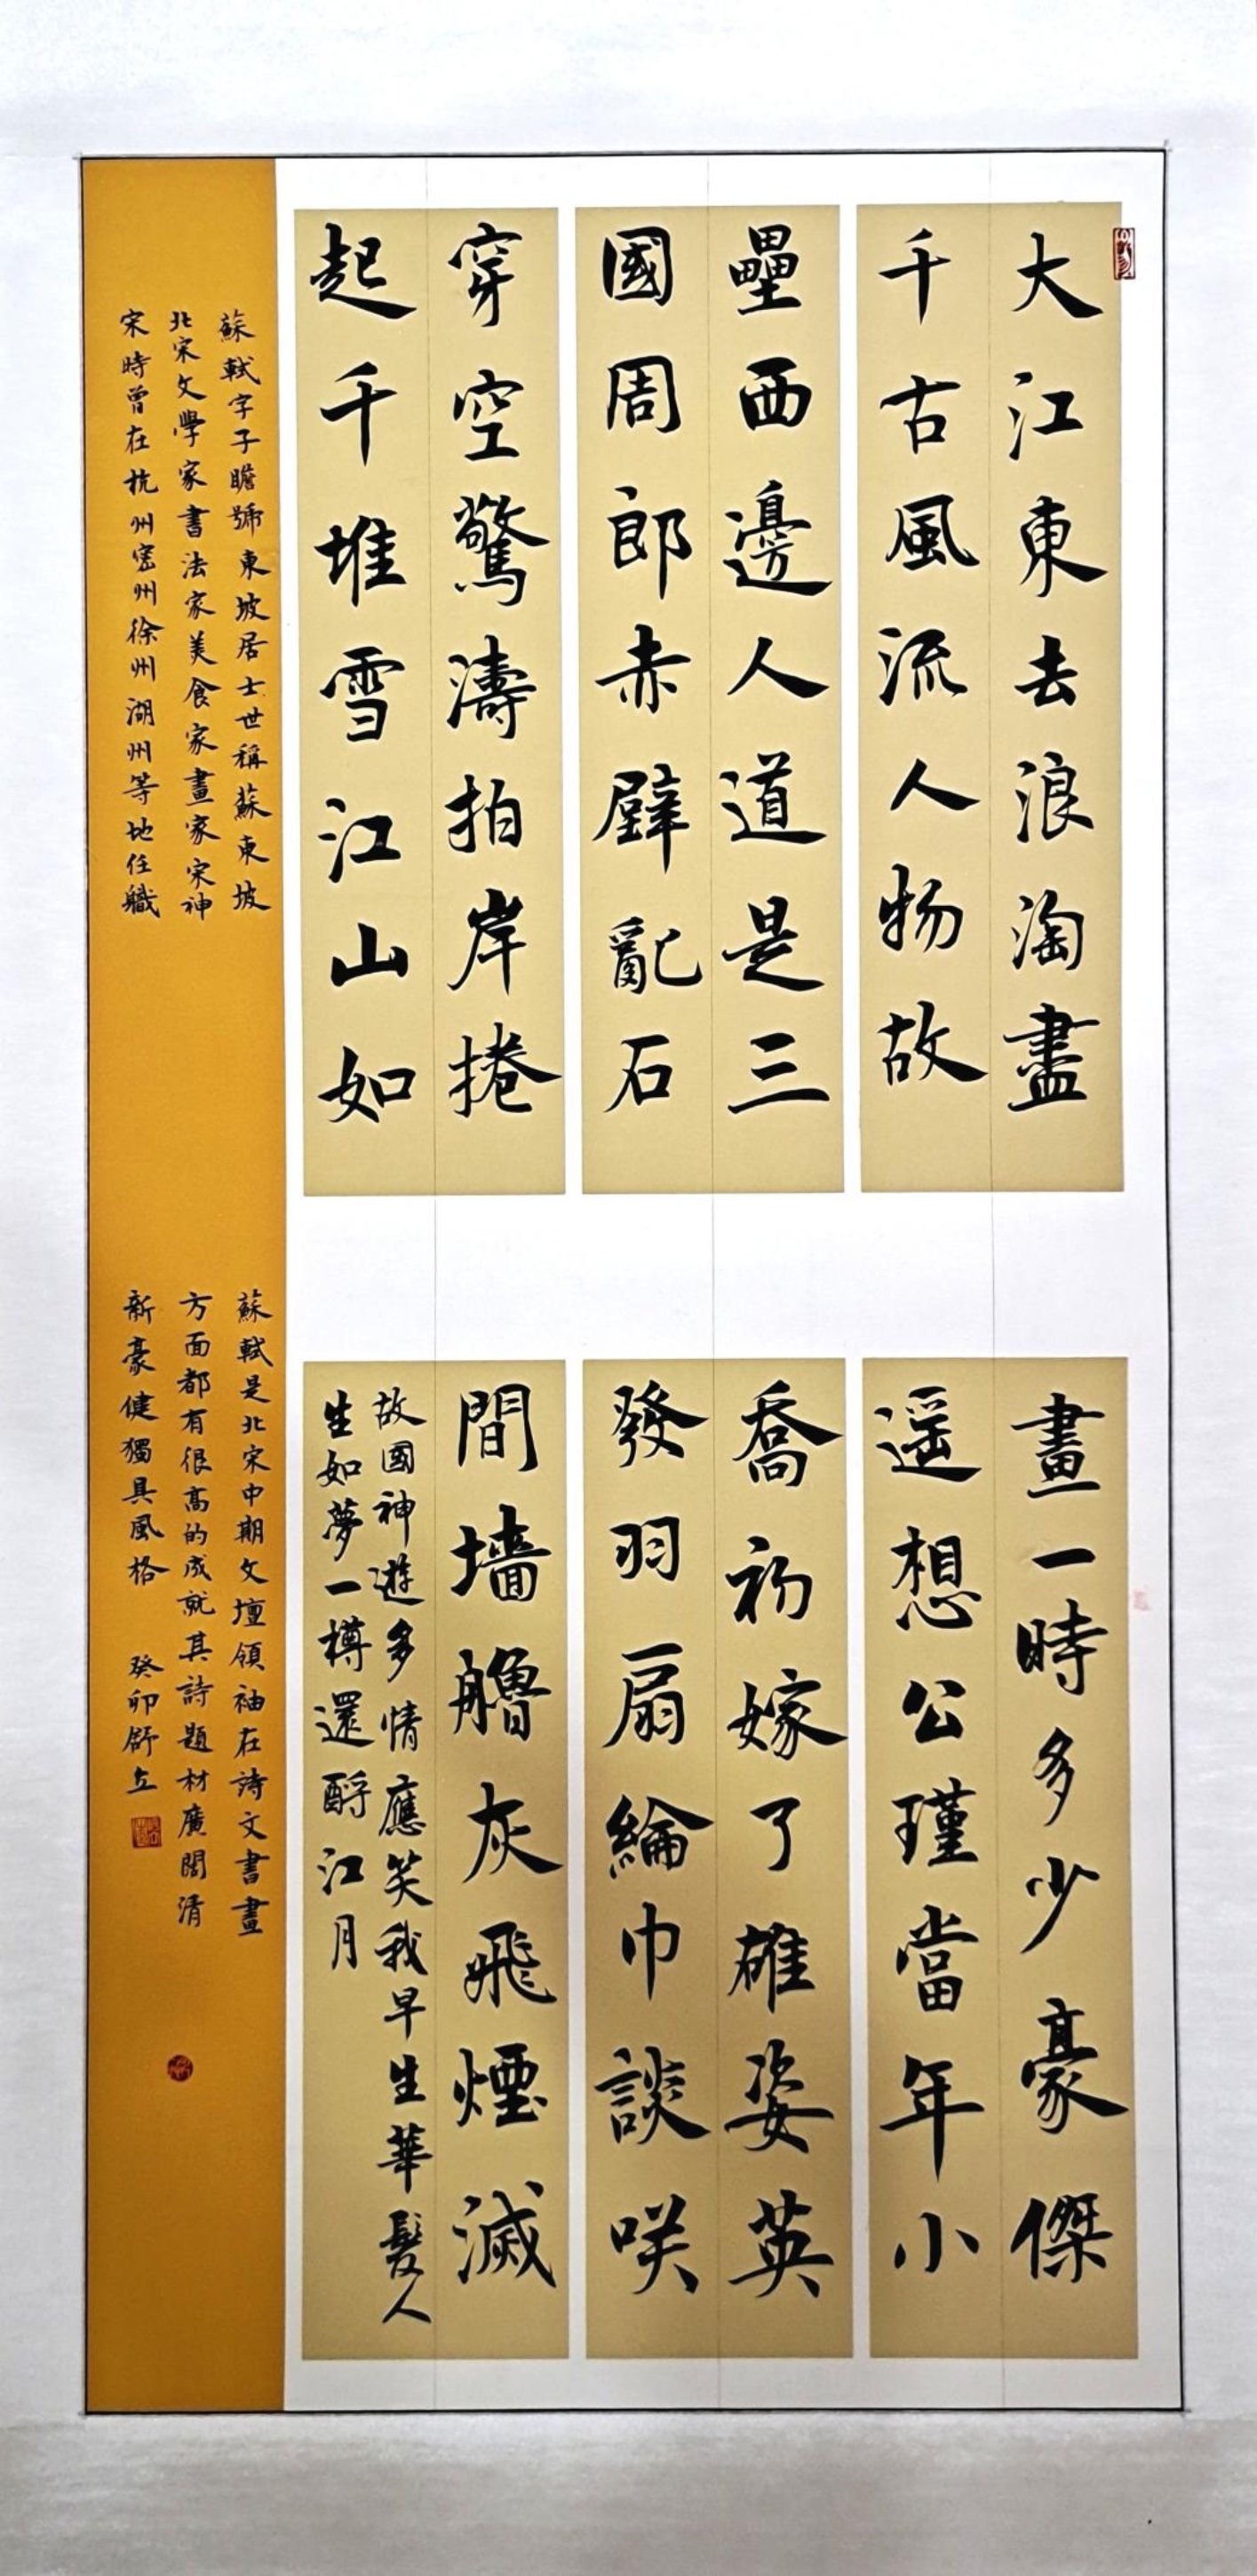 大江東去浪淘盡
千古風流人物故
壘西邊人道是三
國周郎赤壁亂石
穿空驚濤拍岸捲
起千堆雪江山如
畫一時多少豪傑
遥想公瑾當年小
喬初嫁了雄姿英
發羽扇綸巾談咲
間墻艣灰飛煙滅
故國神遊多情應笑我早生華髮人
生如夢一樽還酹江月
蘇軾字子瞻號東坡居士世稱蘇東坡
北宋文學家書法家美食家畫家宋神
宋時曾在杭州密州徐州湖州等地任職
蘇軾是北宋中期文壇領袖在詩文書畫
方面都有很高的成就其詩題材廣闊清
新豪健獨具風格 癸卯舒立